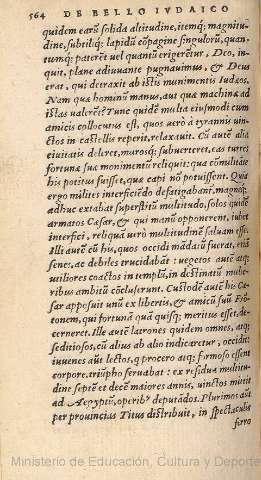 564 DE BELLO IVDAICO
quidem earũ solida altitudine, itemq; magnitu-
dine, subtiliq; lapidũ cõpagine singulorũ, quan-
tumq; paterẽt vel quantũ erigerẽtur. Deo, in-
quit, planè adiuuante pugnauimus, & Deus
erat, qui detraxit ab istis munimentis Iudæos.
Nam quæ hominũ manus, aut quæ machinæ ad
istas valerẽt? Tunc quidẽ multa eiusmodi cum
amicis collocutus est, quos verò à tyrannis vin-
ctos in castellis reperit, relaxauit. Cũ autẽ alia
ciuitatis deleret, murosq; subuerteret, eas turres
fortunæ suæ monimentũ reliquit: qua cõmilitãte
his potitus fuisset, quæ capi nõ potuissent. Quia
ergo milites interficiẽdo defatigabant, magnaq;
adhuc extabat superstitũ multitudo, solos quidẽ
armatos Cæsar, & qui manũ opponerent, iubet
interfici, reliquã verò multitudinẽ saluam esse.
Illi autẽ cũ his, quos occidi mãdatũ fuerat, etiã
senes, ac debiles trucidabãt: vegetos autẽ atq;
vtiliores coactos in templũ, in destinatũ mulie-
ribus ambitũ cõcluserunt. Custodẽ autẽ his Cæ-
sar apposuit vnũ ex libertis, & amicũ suũ Frõ-
tonem, qui fortunã quã quisq; meritus esset, de-
cerneret. Ille autẽ latrones quidem omnes, atq;
seditiosos, cũ alius ab alio indicaretur, occidit:
iuuenes aũt lectos, q procero atq; formoso essent
corpore, triũpho seruabat: ex residua multitu-
dine septẽ et decẽ maiores annis, vinctos misit
ad Aegyptũ, operibꝰ deputãdos. Plurimos aũt
per prouincias Titus distribuit, in spectaculis
ferro
Ministerio de Educación, Cultura y Deporte